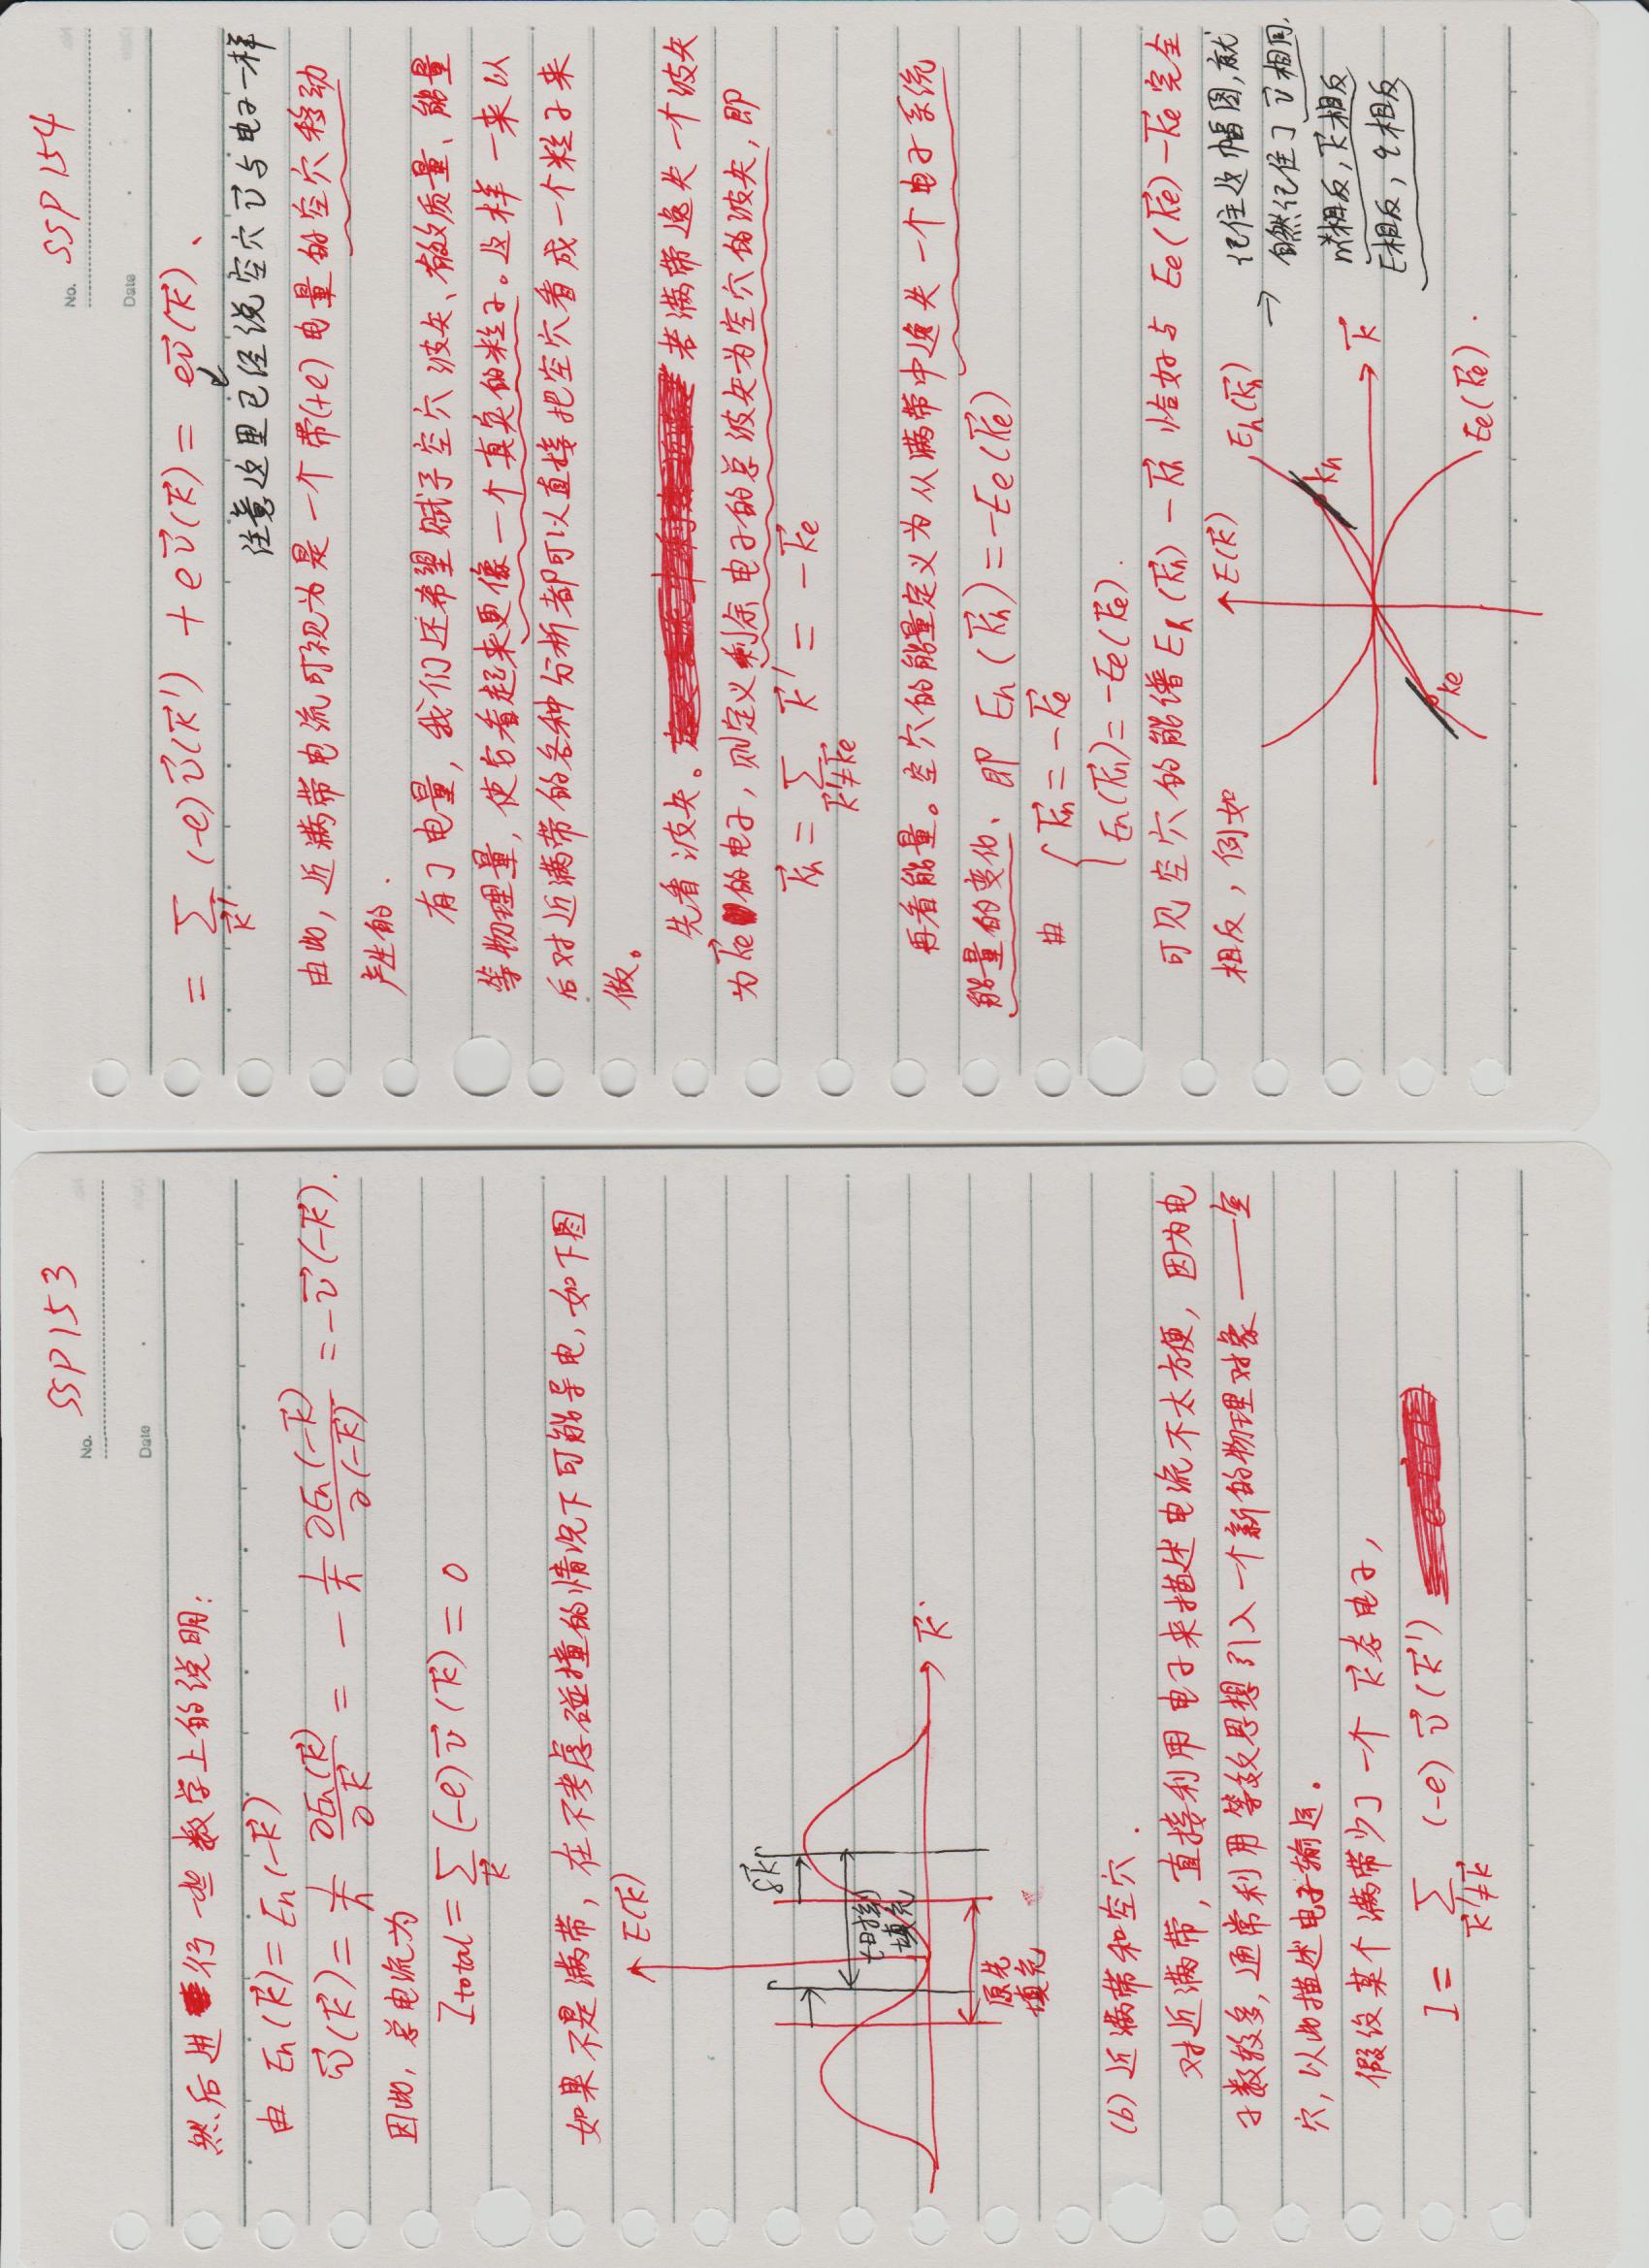 No. SSP 153
Date
然后进行一些数学上的说明:
由 En(k⃗) = En(-k⃗)
v⃗(k⃗) = 1/ħ ∂En(k⃗)/∂k⃗ = - 1/ħ ∂En(-k⃗)/∂(-k⃗) = -v⃗(-k⃗).
因此, 总电流为
Itotal = Σk⃗ (-e) v⃗(k⃗) = 0
如果不是满带, 在不考虑碰撞的情况下可能导电, 如下图
E(k⃗)
δk⃗
t时刻
填充
k⃗
原先
填充
(b) 近满带和空穴.
对近满带, 直接利用电子来描述电流不太方便, 因为电
子数较多, 通常利用等效思想引入一个新的物理对象——空
穴, 以此描述电子输运。
假设某个满带少了一个 k⃗ 态电子,
I = Σk⃗'≠k⃗ (-e) v⃗(k⃗')
No. SSP 154
Date
= Σk⃗' (-e) v⃗(k⃗') + e v⃗(k⃗) = e v⃗(k⃗).
注意这里已经说空穴 v⃗ 与电子一样
由此, 近满带电流可视为是一个带(+e)电量的空穴移动
产生的.
有了电量, 我们还希望赋予空穴波矢、有效质量、能量
等物理量, 使它看起来更像一个真实的粒子。这样一来以
后对近满带的各种分析都可以直接把空穴看成一个粒子来
做。
先看波矢。若满带逸失一个波矢
为 k⃗e 的电子, 则定义剩余电子的总波矢为空穴的波矢, 即
k⃗h = Σk⃗'≠k⃗e k⃗' = -k⃗e
再看能量。空穴的能量定义为从满带中逸失一个电子系统
能量的变化. 即 Eh(k⃗h) = -Ee(k⃗e)
由 { k⃗h = -k⃗e
Eh(k⃗h) = -Ee(k⃗e).
可见空穴的能谱 Eh(k⃗h) - k⃗h 恰好与 Ee(k⃗e) - k⃗e 完全
相反, 例如
E(k⃗)
Eh(k⃗h)
kh
k⃗
ke
Ee(k⃗e).
→ 记住这幅图, 就
自然记住了 v⃗ 相同,
m*相反, k⃗ 相反
E相反, q相反